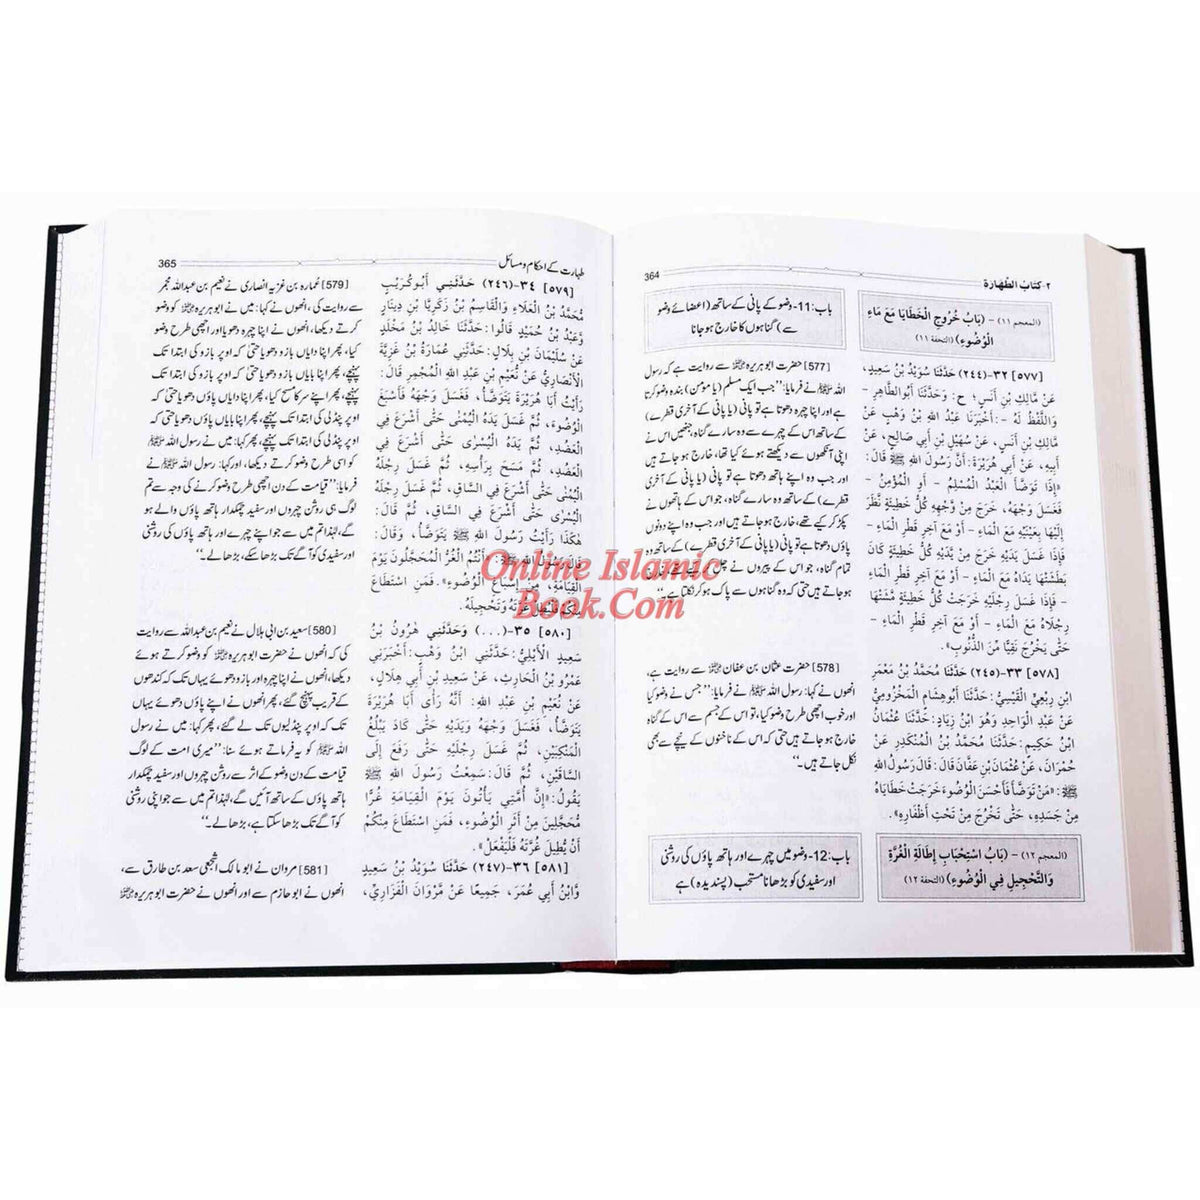 ٢-كتابُ الطَّهَارة
364
(المعجم ١١) - (بَابُ خُرُوجِ الْخَطَايَا مَعَ مَاءِ
الْوُضُوءِ) (التحفة ١١)
[٥٧٧] ٣٢-(٢٤٤) حَدَّثَنَا سُوَيْدُ بْنُ سَعِيدٍ،
عَنْ مَالِكِ بْنِ أَنَسٍ؛ ح: وَحَدَّثَنَا أَبُوالطَّاهِرِ -
وَاللَّفْظُ لَهُ - : أَخْبَرَنَا عَبْدُ اللهِ بْنُ وَهْبٍ عَنْ
مَالِكِ بْنِ أَنَسٍ، عَنْ سُهَيْلِ بْنِ أَبِي صَالِحٍ، عَنْ
أَبِيهِ، عَنْ أَبِي هُرَيْرَةَ: أَنَّ رَسُولَ اللهِ ﷺ قَالَ:
«إِذَا تَوَضَّأَ الْعَبْدُ الْمُسْلِمُ - أَوِ الْمُؤْمِنُ -
فَغَسَلَ وَجْهَهُ، خَرَجَ مِنْ وَجْهِهِ كُلُّ خَطِيئَةٍ نَظَرَ
إِلَيْهَا بِعَيْنَيْهِ مَعَ الْمَاءِ - أَوْ مَعَ آخِرِ قَطْرِ الْمَاءِ -
فَإِذَا غَسَلَ يَدَيْهِ خَرَجَ مِنْ يَدَيْهِ كُلُّ خَطِيئَةٍ كَانَ
بَطَشَتْهَا يَدَاهُ مَعَ الْمَاءِ - أَوْ مَعَ آخِرِ قَطْرِ الْمَاءِ
- فَإِذَا غَسَلَ رِجْلَيْهِ خَرَجَتْ كُلُّ خَطِيئَةٍ مَشَتْهَا
رِجْلَاهُ مَعَ الْمَاءِ - أَوْ مَعَ آخِرِ قَطْرِ الْمَاءِ -
حَتَّى يَخْرُجَ نَقِيًّا مِّنَ الذُّنُوبِ».
[٥٧٨] ٣٣-(٢٤٥) حَدَّثَنَا مُحَمَّدُ بْنُ مَعْمَرِ
ابْنِ رِبْعِيٍّ الْقَيْسِيُّ: حَدَّثَنَا أَبُوهِشَامٍ الْمَخْزُومِيُّ
عَنْ عَبْدِ الْوَاحِدِ وَهُوَ ابْنُ زِيَادٍ: حَدَّثَنَا عُثْمَانُ
ابْنُ حَكِيمٍ: حَدَّثَنَا مُحَمَّدُ بْنُ الْمُنْكَدِرِ عَنْ
حُمْرَانَ، عَنْ عُثْمَانَ بْنِ عَفَّانَ قَالَ: قَالَ رَسُولُ اللهِ
ﷺ: «مَنْ تَوَضَّأَ فَأَحْسَنَ الْوُضُوءَ خَرَجَتْ خَطَايَاهُ
مِنْ جَسَدِهِ، حَتَّى تَخْرُجَ مِنْ تَحْتِ أَظْفَارِهِ».
(المعجم ١٢) - (بَابُ اسْتِحْبَابِ إِطَالَةِ الْغُرَّةِ
وَالتَّحْجِيلِ فِي الْوُضُوءِ) (التحفة ١٢)
باب:11- وضو کے پانی کے ساتھ (اعضائے وضو
سے) گناہوں کا خارج ہو جانا
[577] حضرت ابوہریرہ ؓ سے روایت ہے کہ رسول
اللہ ﷺ نے فرمایا: ”جب ایک مسلم (یا مؤمن) بندہ وضو کرتا
ہے اور اپنا چہرہ دھوتا ہے تو پانی (یا پانی کے آخری قطرے)
کے ساتھ اس کے چہرے سے وہ سارے گناہ، جنھیں اس نے
اپنی آنکھوں سے دیکھتے ہوئے کیا تھا، خارج ہو جاتے ہیں
اور جب وہ اپنے ہاتھ دھوتا ہے تو پانی (یا پانی کے آخری
قطرے) کے ساتھ وہ سارے گناہ، جو اس کے ہاتھوں نے
پکڑ کر کیے تھے، خارج ہو جاتے ہیں اور جب وہ اپنے دونوں
پاؤں دھوتا ہے تو پانی (یا پانی کے آخری قطرے) کے ساتھ وہ
تمام گناہ، جو اس کے پیروں نے چل کر کیے تھے، خارج
ہو جاتے ہیں حتی کہ وہ گناہوں سے پاک ہو کر نکلتا ہے۔“
[578] حضرت عثمان بن عفان ؓ سے روایت ہے،
انھوں نے کہا: رسول اللہ ﷺ نے فرمایا: ”جس نے وضو کیا
اور خوب اچھی طرح وضو کیا، تو اس کے جسم سے اس کے گناہ
خارج ہو جاتے ہیں حتی کہ اس کے ناخنوں کے نیچے سے بھی
نکل جاتے ہیں۔“
باب:12- وضو میں چہرے اور ہاتھ پاؤں کی روشنی
اور سفیدی کو بڑھانا مستحب (پسندیدہ) ہے
طہارت کے احکام و مسائل
365
[٥٧٩] ٣٤-(٢٤٦) حَدَّثَنِي أَبُوكُرَيْبٍ
مُحَمَّدُ بْنُ الْعَلَاءِ وَالْقَاسِمُ بْنُ زَكَرِيَّا بْنِ دِينَارٍ
وَعَبْدُ بْنُ حُمَيْدٍ قَالُوا: حَدَّثَنَا خَالِدُ بْنُ مَخْلَدٍ
عَنْ سُلَيْمَانَ بْنِ بِلَالٍ: حَدَّثَنِي عُمَارَةُ بْنُ غَزِيَّةَ
الْأَنْصَارِيُّ عَنْ نُعَيْمِ بْنِ عَبْدِ اللهِ الْمُجْمِرِ قَالَ:
رَأَيْتُ أَبَا هُرَيْرَةَ يَتَوَضَّأُ، فَغَسَلَ وَجْهَهُ فَأَسْبَغَ
الْوُضُوءَ، ثُمَّ غَسَلَ يَدَهُ الْيُمْنَى حَتَّى أَشْرَعَ فِي
الْعَضُدِ، ثُمَّ يَدَهُ الْيُسْرَى حَتَّى أَشْرَعَ فِي
الْعَضُدِ، ثُمَّ مَسَحَ بِرَأْسِهِ، ثُمَّ غَسَلَ رِجْلَهُ
الْيُمْنَى حَتَّى أَشْرَعَ فِي السَّاقِ، ثُمَّ غَسَلَ رِجْلَهُ
الْيُسْرَى حَتَّى أَشْرَعَ فِي السَّاقِ، ثُمَّ قَالَ:
هٰكَذَا رَأَيْتُ رَسُولَ اللهِ ﷺ يَتَوَضَّأُ، وَقَالَ:
قَالَ رَسُولُ اللهِ ﷺ: «أَنْتُمُ الْغُرُّ الْمُحَجَّلُونَ يَوْمَ
الْقِيَامَةِ، مِنْ إِسْبَاغِ الْوُضُوءِ». فَمَنِ اسْتَطَاعَ
مِنْكُمْ فَلْيُطِلْ غُرَّتَهُ وَتَحْجِيلَهُ.
[٥٨٠] ٣٥-(...) وَحَدَّثَنِي هٰرُونُ بْنُ
سَعِيدٍ الْأَيْلِيُّ: حَدَّثَنِي ابْنُ وَهْبٍ: أَخْبَرَنِي
عَمْرُو بْنُ الْحَارِثِ، عَنْ سَعِيدِ بْنِ أَبِي هِلَالٍ،
عَنْ نُعَيْمِ بْنِ عَبْدِ اللهِ: أَنَّهُ رَأَى أَبَا هُرَيْرَةَ
يَتَوَضَّأُ، فَغَسَلَ وَجْهَهُ وَيَدَيْهِ حَتَّى كَادَ يَبْلُغُ
الْمَنْكِبَيْنِ، ثُمَّ غَسَلَ رِجْلَيْهِ حَتَّى رَفَعَ إِلَى
السَّاقَيْنِ، ثُمَّ قَالَ: سَمِعْتُ رَسُولَ اللهِ ﷺ
يَقُولُ: «إِنَّ أُمَّتِي يَأْتُونَ يَوْمَ الْقِيَامَةِ غُرًّا
مُحَجَّلِينَ مِنْ أَثَرِ الْوُضُوءِ، فَمَنِ اسْتَطَاعَ مِنْكُمْ
أَنْ يُطِيلَ غُرَّتَهُ فَلْيَفْعَلْ».
[٥٨١] ٣٦-(٢٤٧) حَدَّثَنَا سُوَيْدُ بْنُ سَعِيدٍ
وَّابْنُ أَبِي عُمَرَ، جَمِيعًا عَنْ مَّرْوَانَ الْفَزَارِيِّ،
[579] عمارہ بن غزیہ انصاری نے نعیم بن عبداللہ مجمر
سے روایت کی، انھوں نے کہا: میں نے ابوہریرہ ؓ کو وضو
کرتے دیکھا، انھوں نے اپنا چہرہ دھویا اور اچھی طرح وضو
کیا، پھر اپنا دایاں بازو دھویا حتیٰ کہ اوپر بازو کی ابتدا تک
پہنچے، پھر اپنا بایاں بازو دھویا حتیٰ کہ اوپر بازو کی ابتدا تک
پہنچے، پھر اپنے سر کا مسح کیا، پھر اپنا دایاں پاؤں دھویا حتیٰ کہ
اوپر پنڈلی کی ابتدا تک پہنچے، پھر اپنا بایاں پاؤں دھویا حتیٰ کہ
اوپر پنڈلی کی ابتدا تک پہنچے، پھر کہا: میں نے رسول اللہ ﷺ
کو اسی طرح وضو کرتے دیکھا، اور کہا: رسول اللہ ﷺ نے
فرمایا: ”قیامت کے دن اچھی طرح وضو کرنے کی وجہ سے تم
لوگ ہی روشن چہروں اور سفید چمکدار ہاتھ پاؤں والے ہو
گے، لہٰذا تم میں سے جو اپنے چہرے اور ہاتھ پاؤں کی روشنی
اور سفیدی کو آگے تک بڑھا سکے، بڑھا لے۔“
[580] سعید بن ابی ہلال نے نعیم بن عبداللہ سے روایت
کی کہ انھوں نے حضرت ابوہریرہ ؓ کو وضو کرتے ہوئے
دیکھا، انھوں نے اپنا چہرہ اور بازو دھوئے یہاں تک کہ کندھوں
کے قریب پہنچ گئے، پھر انھوں نے اپنے پاؤں دھوئے یہاں
تک کہ اوپر پنڈلیوں تک لے گئے، پھر کہا: میں نے رسول
اللہ ﷺ کو یہ فرماتے ہوئے سنا: ”میری امت کے لوگ
قیامت کے دن وضو کے اثر سے روشن چہروں اور سفید چمکدار
ہاتھ پاؤں کے ساتھ آئیں گے، لہٰذا تم میں سے جو اپنی روشنی
کو آگے تک بڑھا سکتا ہے، بڑھا لے۔“
[581] مروان نے ابومالک اشجعی سعد بن طارق سے،
انھوں نے ابوحازم سے اور انھوں نے حضرت ابوہریرہ ؓ
Online Islamic
Book.Com